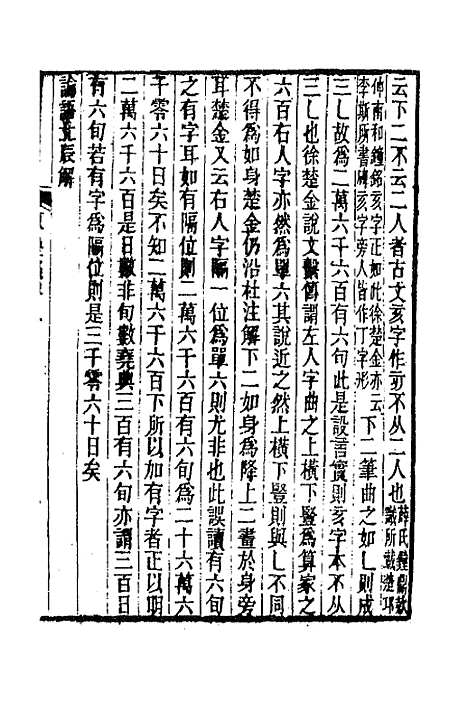 云下二不云二人者古文亥字作𠀅不从二人也薛氏鐘鼎款識所載楚邛
仲南和鐘銘亥字正如此徐楚金亦云李斯所書碑亥字旁人皆作丁字形下二筆曲之如乚則成
三乚故為二萬六千六百有六旬此是設言實則亥字本不从
三乚也徐楚金說文繫傳謂左人字曲之上橫下豎為算家之
六百右人字亦然為單六其說近之然上橫下豎則與乚不同
不得為如身楚金仍沿杜注解下二如身為降上二畫於身旁
耳楚金又云右人字隔一位為單六則尤非也此誤讀有六旬
之有字耳如有隔位則二萬六千六百有六旬為二十六萬六
千零六十日矣不知二萬六千六百下所以加有字者正以明
二萬六千六百是日數非旬數堯典三百有六旬亦謂三百日
有六旬若有字為隔位則是三千零六十日矣
論語北辰解